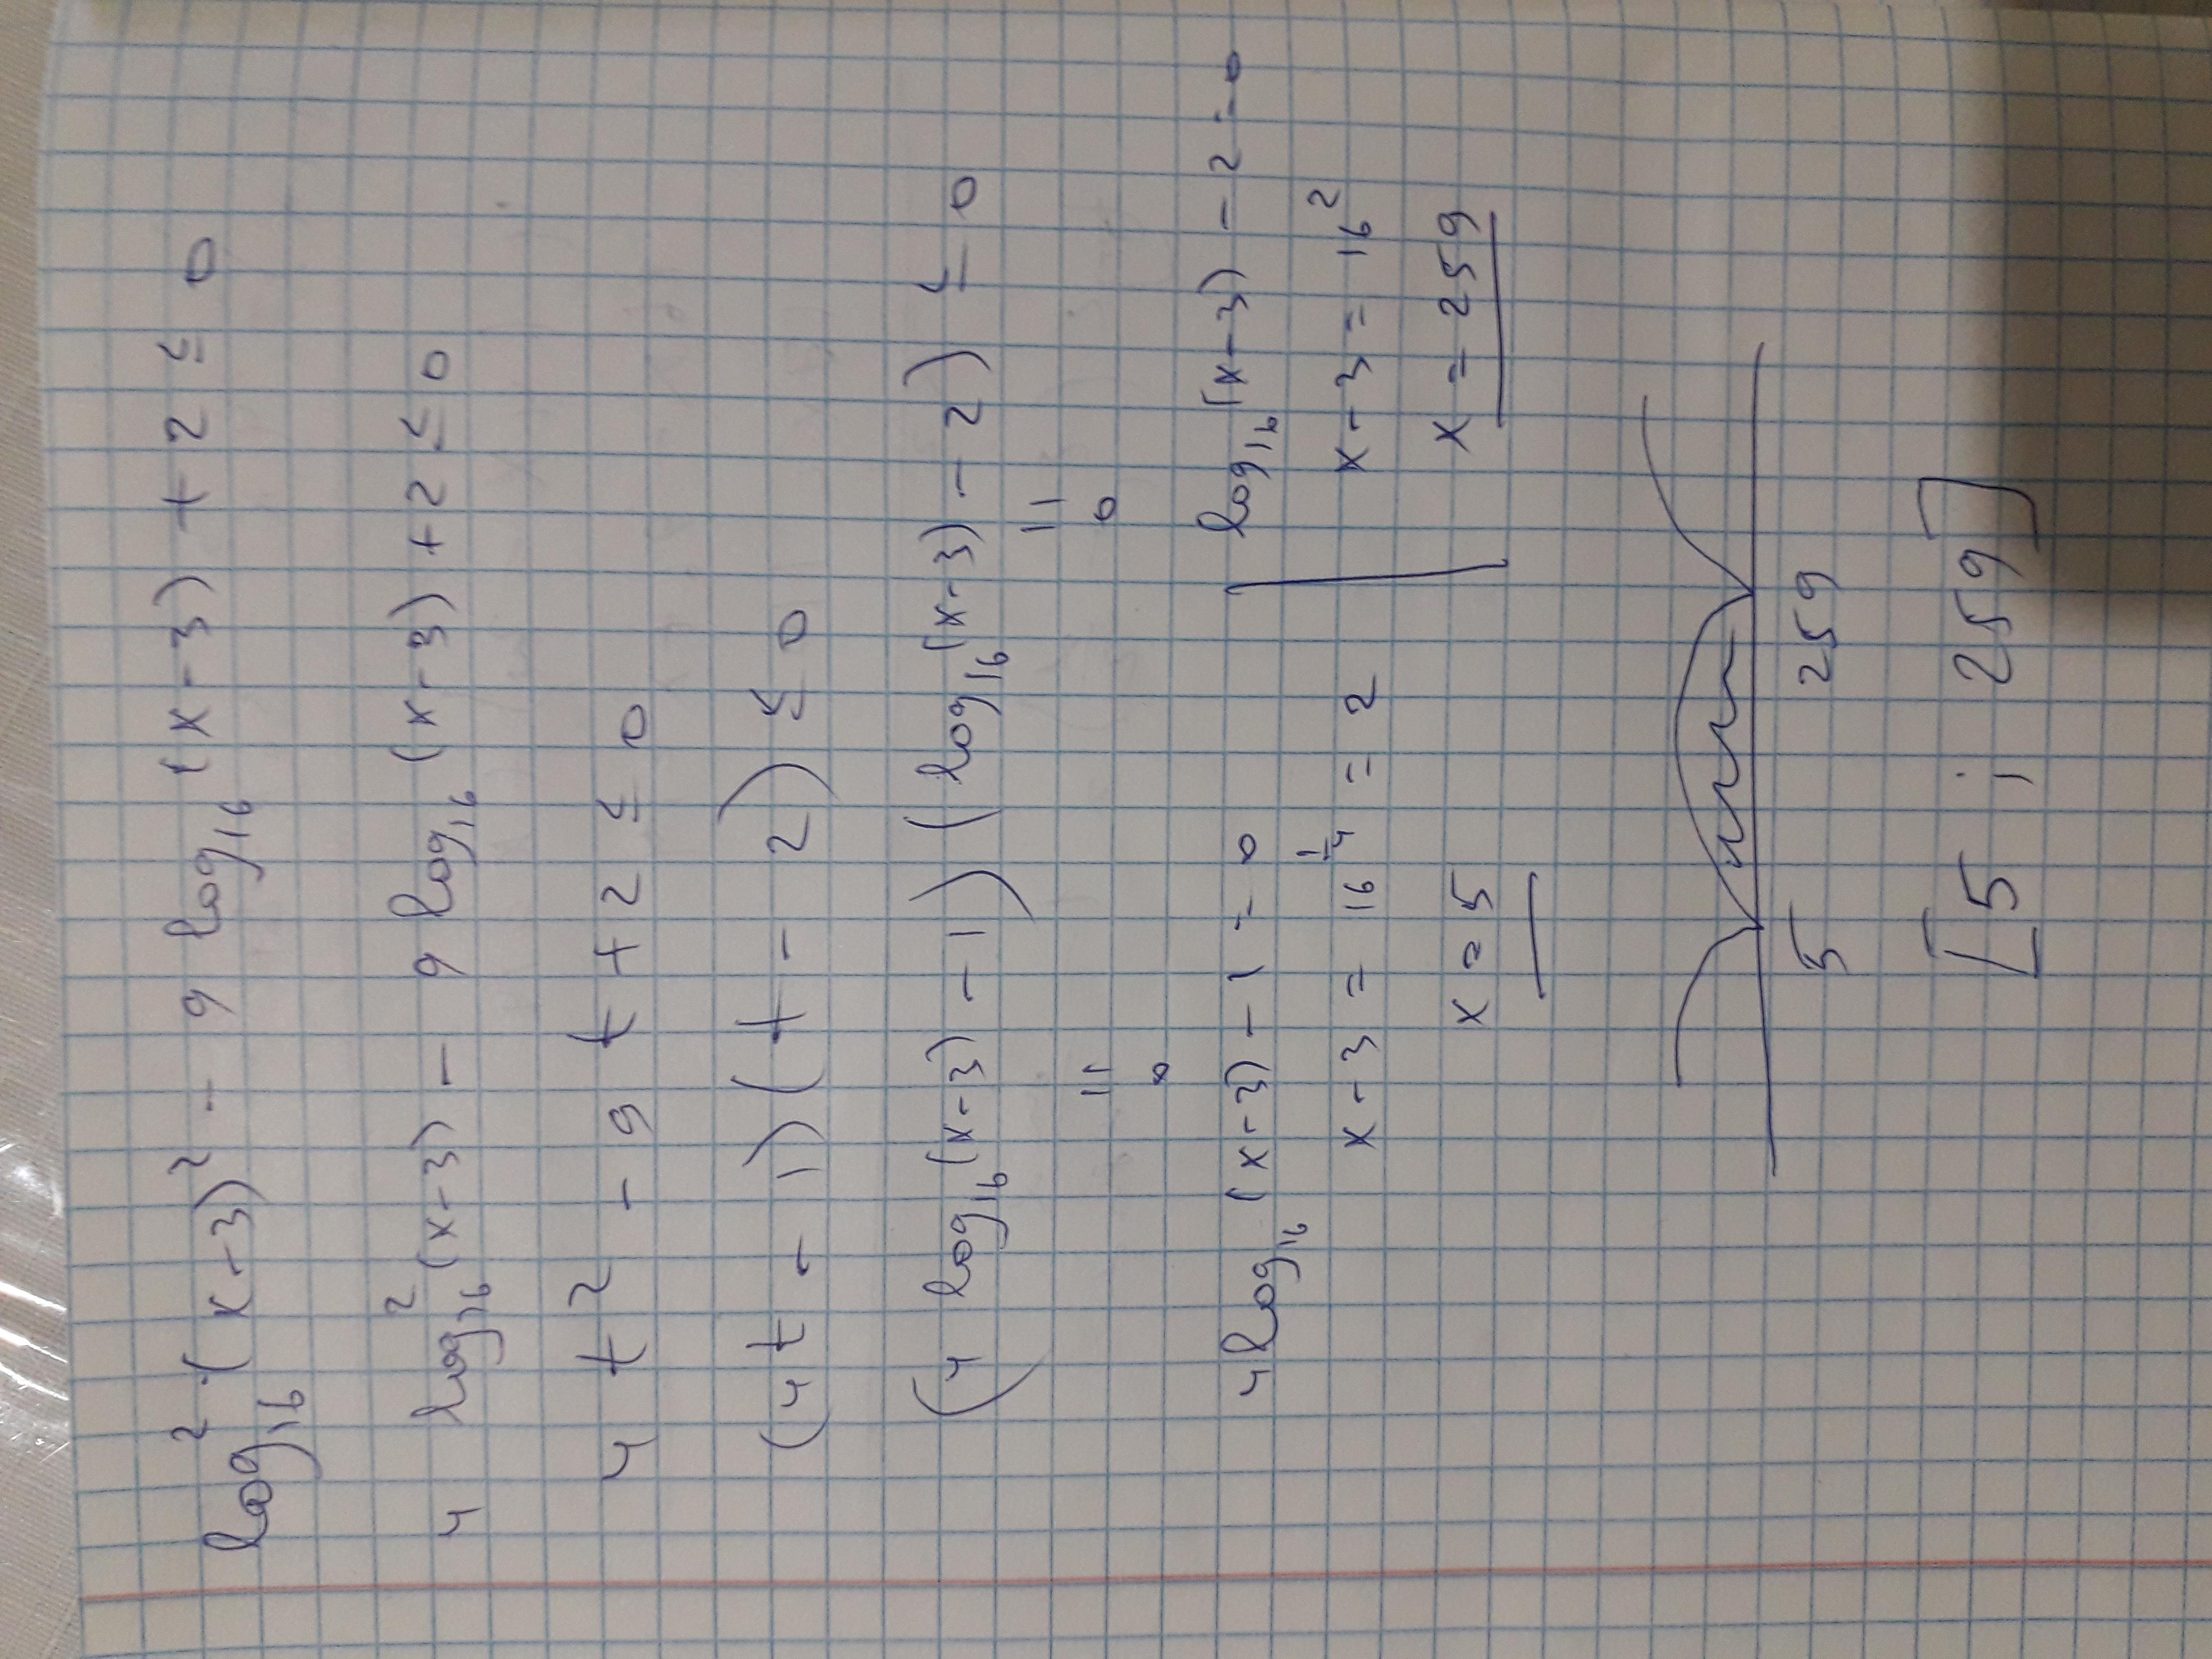 log₁₆² (x-3)² - 9 log₁₆ (x-3) + 2 ≤ 0
4 log₁₆² (x-3) - 9 log₁₆ (x-3) + 2 ≤ 0
4t² - 9t + 2 ≤ 0
(4t - 1)(t - 2) ≤ 0
(4 log₁₆ (x-3) - 1)(log₁₆ (x-3) - 2) ≤ 0
= =
0 0
4log₁₆ (x-3) - 1 = 0 | log₁₆ (x-3) - 2 = 0
x - 3 = 16^(1/4) = 2 | x - 3 = 16²
x = 5 | x = 259
5 259
[5 ; 259]